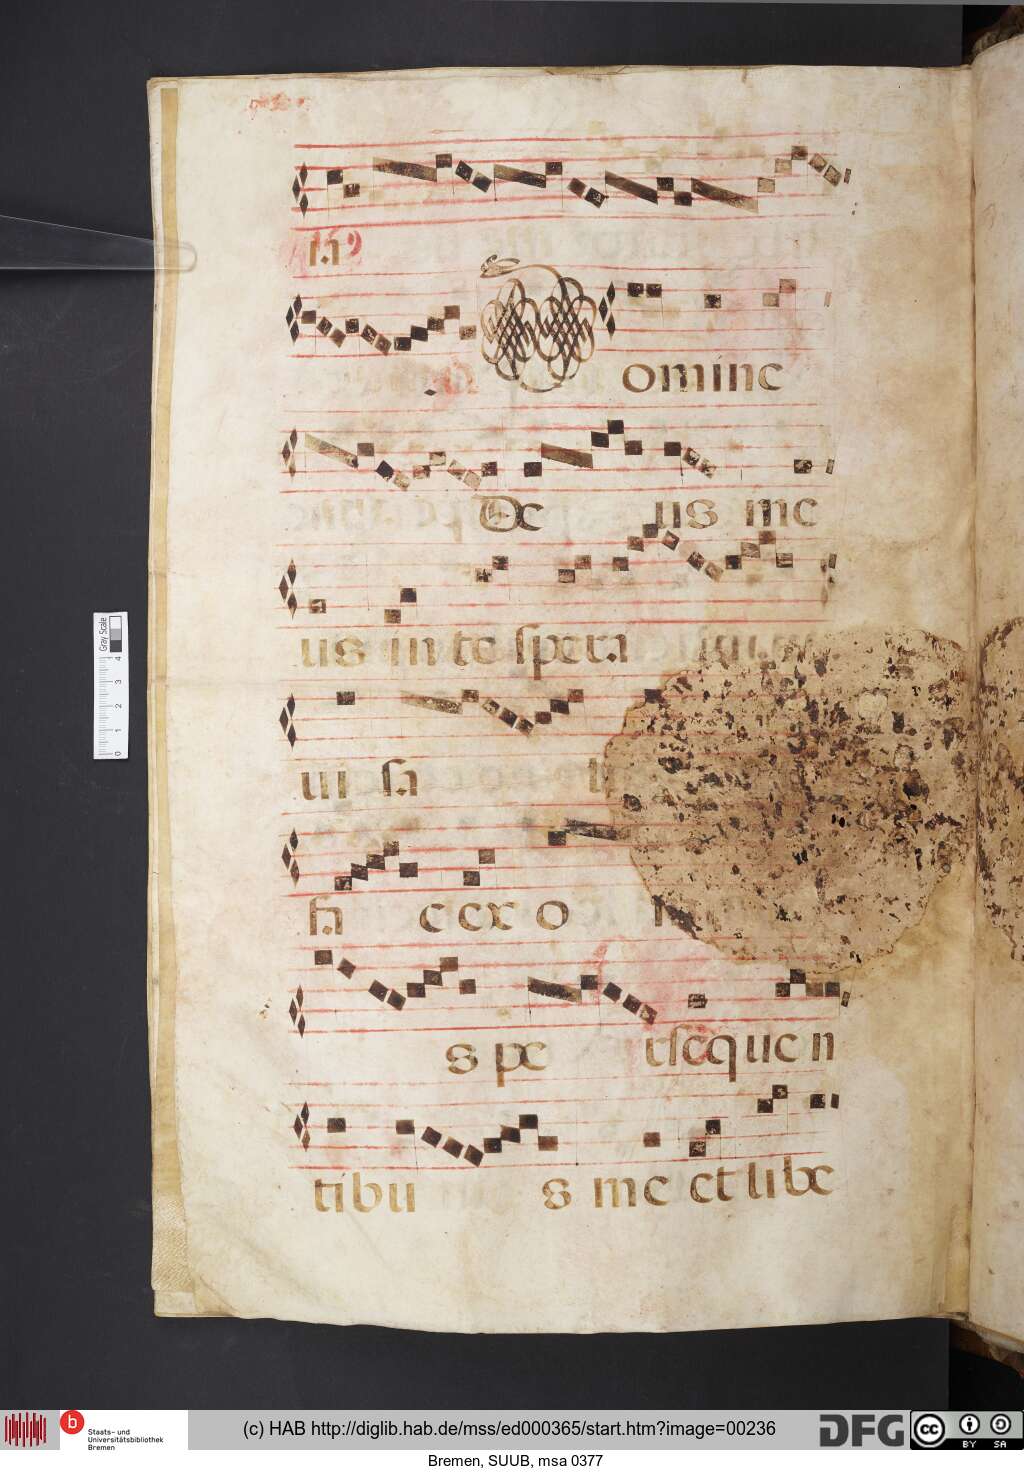 la
omine
de us me
us in te spera
ui sa
fa c ex o
s pe rsequen
tibu s me et libe
Gray Scale
4
3
2
1
0
b
Staats- und
Universitätsbibliothek
Bremen
(c) HAB http://diglib.hab.de/mss/ed000365/start.htm?image=00236
DFG
cc BY SA
Bremen, SUUB, msa 0377